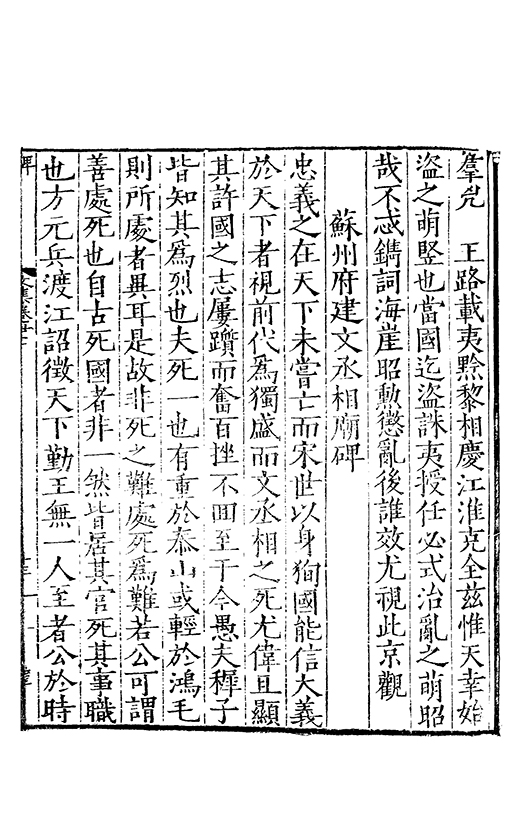 羣兇　王路載夷黔黎相慶江淮克全兹惟天幸始
盜之萌豎也當國迄盜誅夷授任必式治亂之萌昭
哉不忒鐫詞海崖昭勲懲亂後誰效尤視此京觀
蘇州府建文丞相廟碑
忠義之在天下未嘗亡而宋世以身狥國能信大義
於天下者視前代爲獨盛而文丞相之死尤偉且顯
其許國之志屢躓而奮百挫不回至于今愚夫穉子
皆知其爲烈也夫死一也有重於泰山或輕於鴻毛
則所處者異耳是故非死之難處死爲難若公可謂
善處死也自古死國者非一然皆居其官死其事職
也方元兵渡江詔徵天下勤王無一人至者公於時